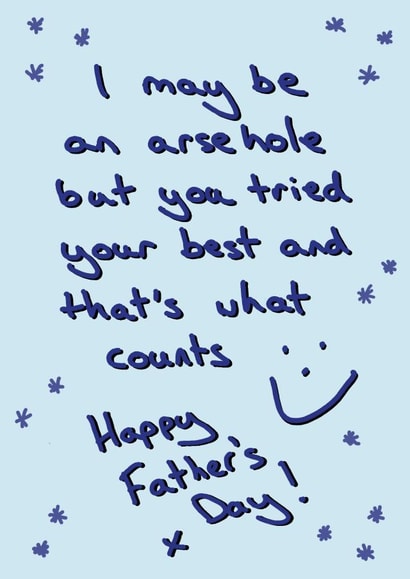 I may be
an arsehole
but you tried
your best and
that's what
counts
Happy
Father's
Day!
x